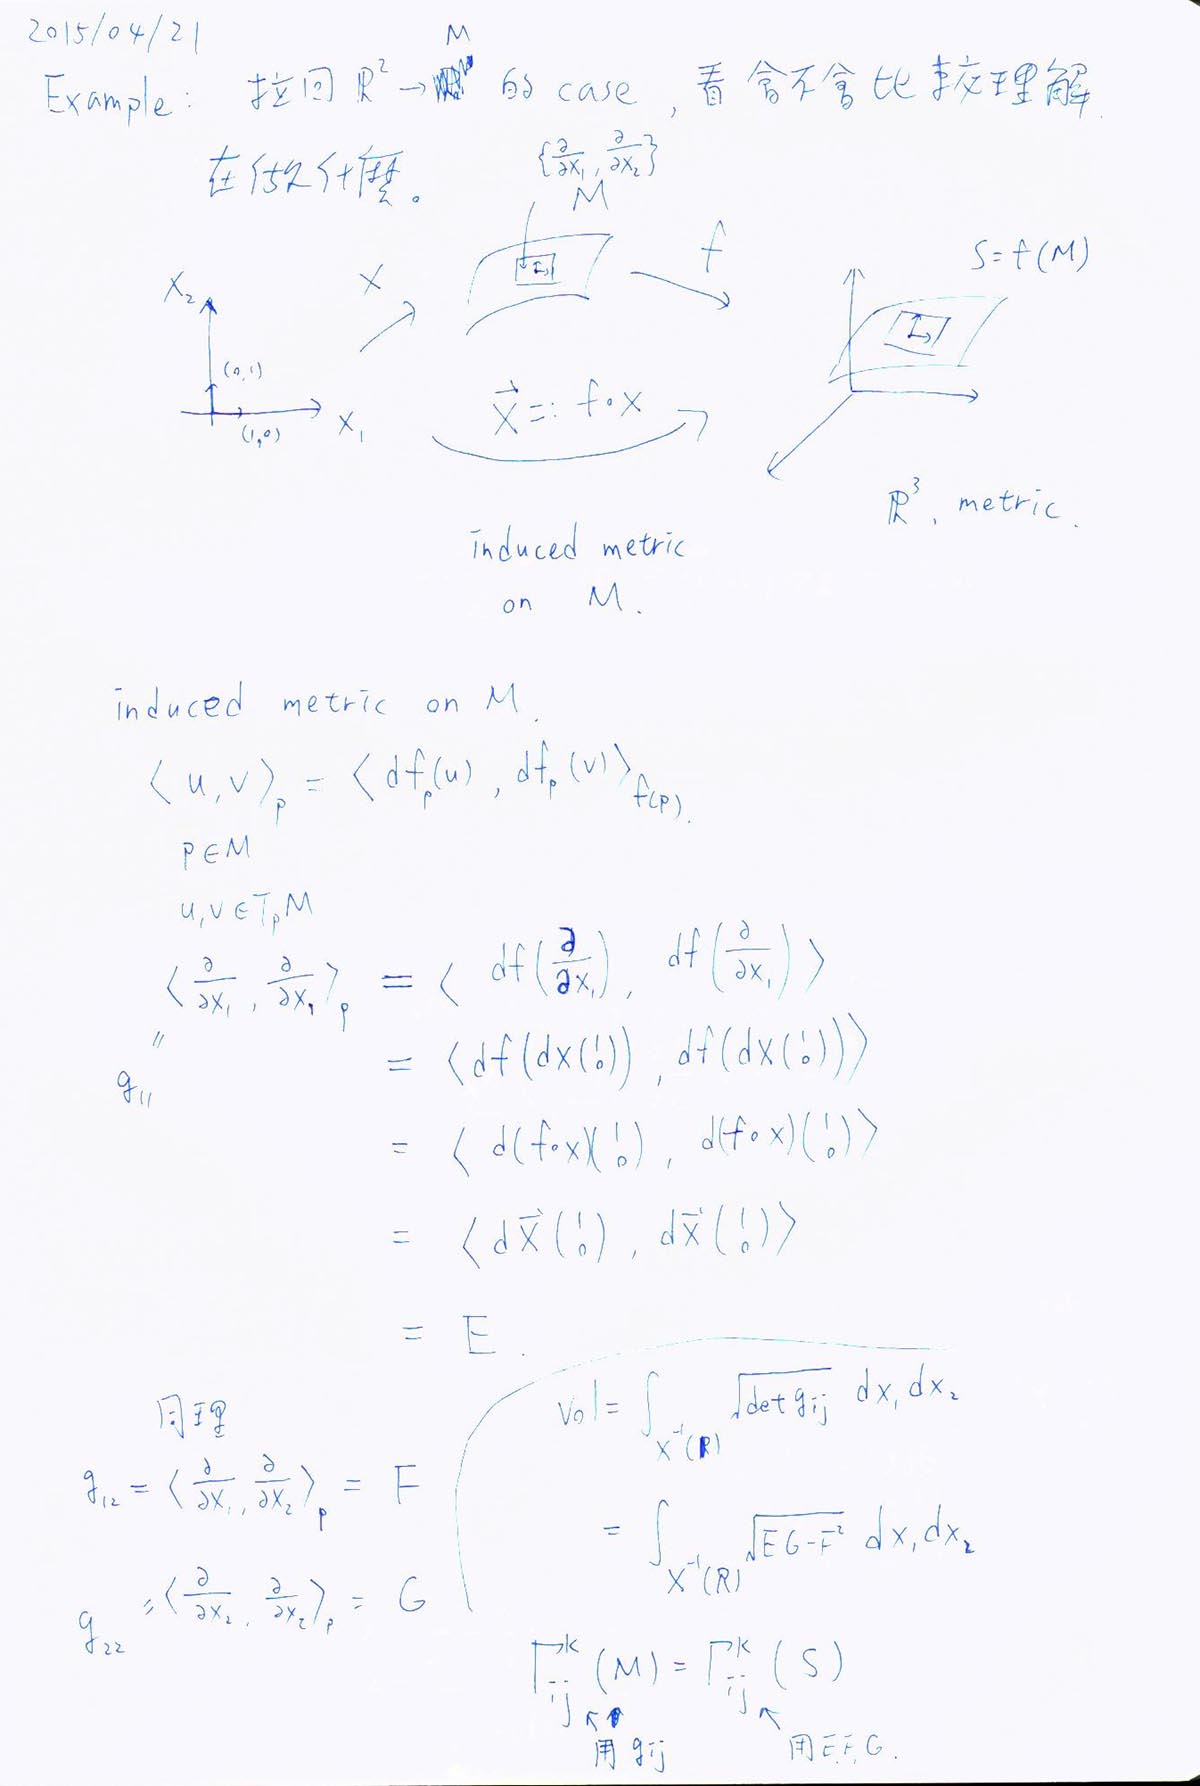 2015/04/21
M
Example: 拉回 ℝ² → 的 case, 看會不會比較理解
在做什麼。
{∂/∂x₁, ∂/∂x₂}
M
x₂
x
f
S = f(M)
(0,1)
(1,0)
x₁
X⃗ =: f∘x
ℝ³, metric.
induced metric
on M.
induced metric on M.
⟨u, v⟩_p = ⟨df_p(u), df_p(v)⟩_f(p).
p ∈ M
u, v ∈ T_pM
⟨∂/∂x₁, ∂/∂x₁⟩_p = ⟨df(∂/∂x₁), df(∂/∂x₁)⟩
"
g₁₁
= ⟨df(dx(1 0)), df(dx(1 0))⟩
= ⟨d(f∘x)(1 0), d(f∘x)(1 0)⟩
= ⟨dX⃗(1 0), dX⃗(1 0)⟩
= E.
同理
g₁₂ = ⟨∂/∂x₁, ∂/∂x₂⟩_p = F
g₂₂ = ⟨∂/∂x₂, ∂/∂x₂⟩_p = G
Vol = ∫_x⁻¹(R) √det g_ij dx₁dx₂
= ∫_x⁻¹(R) √EG-F² dx₁dx₂
Γ^k_ij (M) = Γ^k_ij (S)
用 g_ij
用 E, F, G.